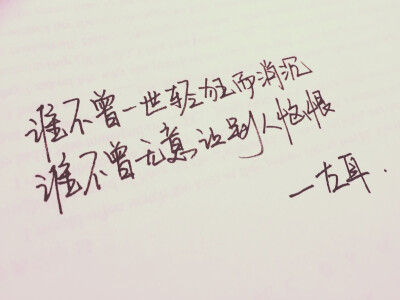 谁不曾一世轻狂而消沉
谁不曾无意让别人怕恨
一左耳.